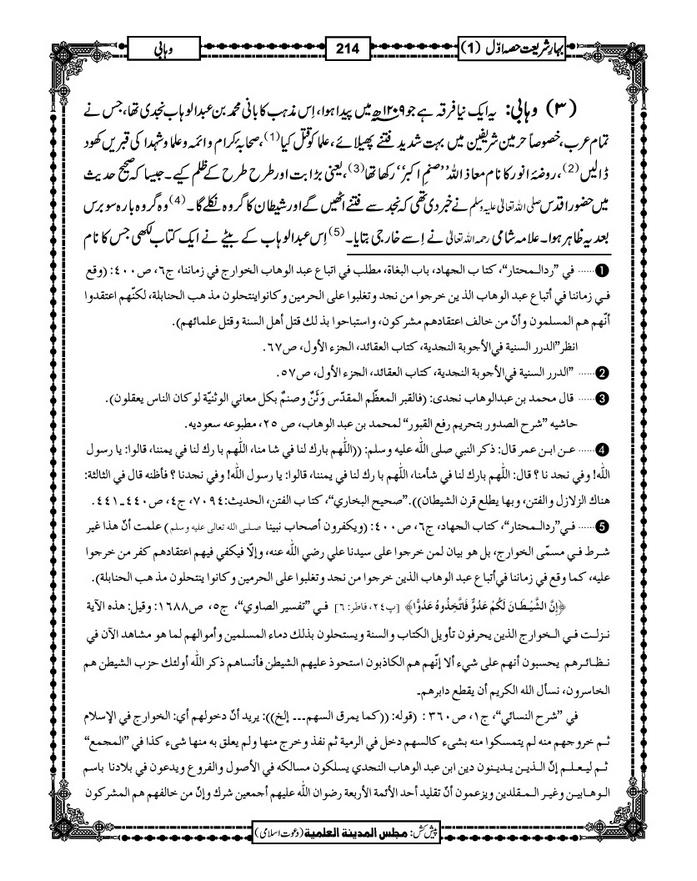 بہارِ شریعت حصہ اوّل (1)
214
وہابی
(۳) وہابی: یہ ایک نیا فرقہ ہے جو ۱۲۰۹ھ میں پیدا ہوا، اِس مذہب کا بانی محمد بن عبدالوہاب نجدی تھا، جس نے
تمام عرب، خصوصاً حرمین شریفین میں بہت شدید فتنے پھیلائے، علما کو قتل کیا(1)، صحابۂ کرام و ائمہ و علما و شہدا کی قبریں کھود
ڈالیں(2)، روضۂ انور کا نام معاذ اللہ ’’صنمِ اکبر‘‘ رکھا تھا(3)، یعنی بڑا بت اور طرح طرح کے ظلم کیے۔ جیسا کہ صحیح حدیث
میں حضور اقدس صلی اللہ تعالیٰ علیہ وسلم نے خبر دی تھی کہ نجد سے فتنے اٹھیں گے اور شیطان کا گروہ نکلے گا۔(4) وہ گروہ بارہ سو برس
بعد یہ ظاہر ہوا۔ علامہ شامی رحمہ اللہ تعالیٰ نے اِسے خارجی بتایا۔(5) اِس عبدالوہاب کے بیٹے نے ایک کتاب لکھی جس کا نام
1 ...... في ”ردالمحتار“، كتاب الجهاد، باب البغاة، مطلب في اتباع عبد الوهاب الخوارج في زماننا، ج٦، ص٤٠٠: (وقع
في زماننا في أتباع عبد الوهاب الذين خرجوا من نجد وتغلبوا على الحرمين وكانوا ينتحلون مذهب الحنابلة، لكنّهم اعتقدوا
أنّهم هم المسلمون وأنّ من خالف اعتقادهم مشركون، واستباحوا بذلك قتل أهل السنة وقتل علمائهم).
انظر ”الدرر السنية في الأجوبة النجدية، كتاب العقائد، الجزء الأول، ص٦٧.
2 ...... ”الدرر السنية في الأجوبة النجدية، كتاب العقائد، الجزء الأول، ص٥٧.
3 ...... قال محمد بن عبدالوهاب نجدی: (فالقبر المعظّم المقدّس وَثَنٌ وصنمٌ بكل معاني الوثنيّة لو كان الناس يعقلون).
حاشیه ”شرح الصدور بتحريم رفع القبور“ لمحمد بن عبد الوهاب، ص ٢٥، مطبوعه سعوديه.
4 ...... عن ابن عمر قال: ذكر النبي صلى الله عليه وسلم: ((اللّهم بارك لنا في شامنا، اللّهم بارك لنا في يمننا، قالوا: يا رسول
الله! وفي نجدنا؟ قال: اللّهم بارك لنا في شأمنا، اللّهم بارك لنا في يمننا، قالوا: يا رسول الله! وفي نجدنا؟ فأظنه قال في الثالثة:
هناك الزلازل والفتن، وبها يطلع قرن الشيطان)). ”صحيح البخاري“، كتاب الفتن، الحديث: ٧٠٩٤، ج٤، ص٤٤٠ـ٤٤١.
5 ...... في ”ردالمحتار“، كتاب الجهاد، ج٦، ص٤٠٠: (ويكفرون أصحاب نبينا صلى الله تعالى عليه وسلم) علمت أنّ هذا غير
شرط في مسمّى الخوارج، بل هو بيان لمن خرجوا على سيدنا علي رضي الله عنه، وإلّا فيكفي فيهم اعتقادهم كفر من خرجوا
عليه، كما وقع في زماننا في أتباع عبد الوهاب الذين خرجوا من نجد وتغلبوا على الحرمين وكانوا ينتحلون مذهب الحنابلة).
﴿إِنَّ الشَّيْطَانَ لَكُمْ عَدُوٌّ فَاتَّخِذُوهُ عَدُوًّا﴾ [پ٢٤، فاطر: ٦] في ”تفسير الصاوي“، ج٥، ص١٦٨٨: وقيل: هذه الآية
نزلت في الخوارج الذين يحرفون تأويل الكتاب والسنة ويستحلون بذلك دماء المسلمين وأموالهم لما هو مشاهد الآن في
نظائرهم يحسبون أنهم على شيء ألا إنّهم هم الكاذبون استحوذ عليهم الشيطن فأنساهم ذكر الله أولئك حزب الشيطن هم
الخاسرون، نسأل الله الكريم أن يقطع دابرهم۔
في ”شرح النسائي“، ج١، ص٣٦٠: (قوله: ((كما يمرق السهم... إلخ)): يريد أنّ دخولهم أي: الخوارج في الإسلام
ثم خروجهم منه لم يتمسكوا منه بشيء كالسهم دخل في الرمية ثم نفذ وخرج منها ولم يعلق به منها شيء كذا في ”المجمع“
ثم ليعلم إنّ الذين يدينون دين ابن عبد الوهاب النجدي يسلكون مسالكه في الأصول والفروع ويدعون في بلادنا باسم
الوهابين وغير المقلدين ويزعمون أنّ تقليد أحد الأئمة الأربعة رضوان الله عليهم أجمعين شرك وإنّ من خالفهم هم المشركون
پیش کش: مجلس المدينة العلمية (دعوتِ اسلامی)